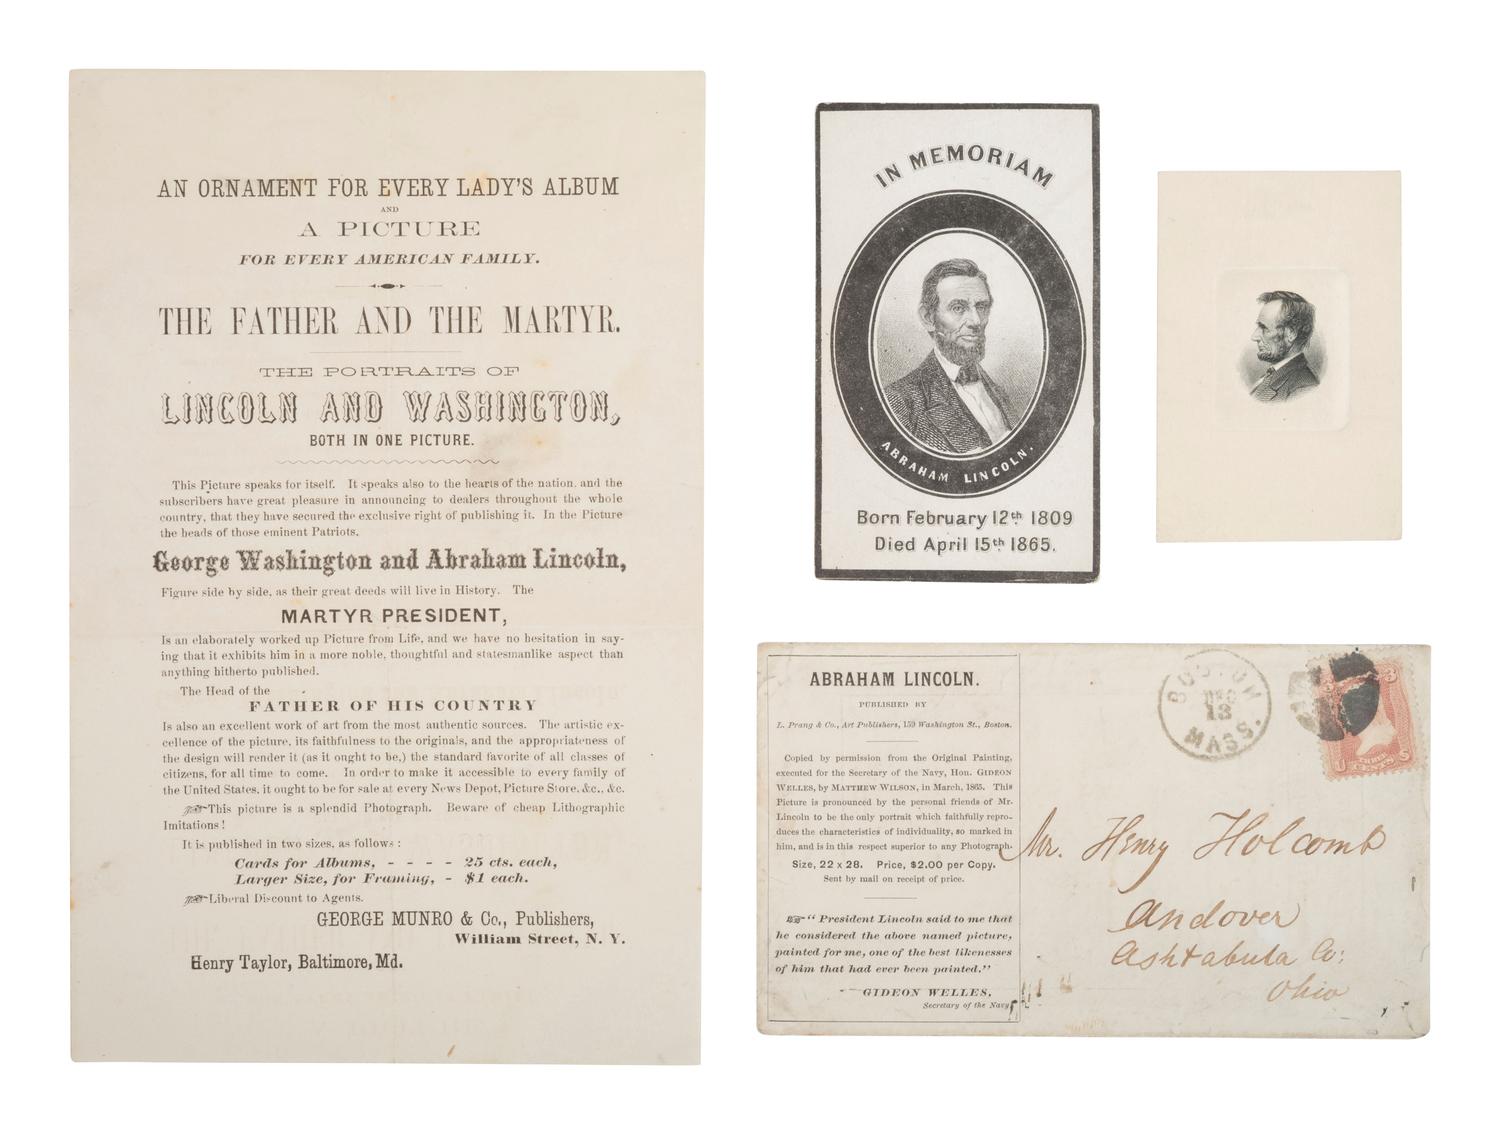 AN ORNAMENT FOR EVERY LADY'S ALBUM
AND
A PICTURE
FOR EVERY AMERICAN FAMILY.
THE FATHER AND THE MARTYR.
THE PORTRAITS OF
LINCOLN AND WASHINGTON,
BOTH IN ONE PICTURE.
This Picture speaks for itself. It speaks also to the hearts of the nation, and the
subscribers have great pleasure in announcing to dealers throughout the whole
country, that they have secured the exclusive right of publishing it. In the Picture
the heads of those eminent Patriots.
George Washington and Abraham Lincoln,
Figure side by side, as their great deeds will live in History. The
MARTYR PRESIDENT,
Is an elaborately worked up Picture from Life, and we have no hesitation in say-
ing that it exhibits him in a more noble, thoughtful and statesmanlike aspect than
anything hitherto published.
The Head of the
FATHER OF HIS COUNTRY
Is also an excellent work of art from the most authentic sources. The artistic ex-
cellence of the picture, its faithfulness to the originals, and the appropriateness of
the design will render it (as it ought to be,) the standard favorite of all classes of
citizens, for all time to come. In order to make it accessible to every family of
the United States, it ought to be for sale at every News Depot, Picture Store, &c., &c.
☞This picture is a splendid Photograph. Beware of cheap Lithographic
Imitations!
It is published in two sizes, as follows:
Cards for Albums, - - - - 25 cts. each,
Larger Size, for Framing, - $1 each.
☞Liberal Discount to Agents.
GEORGE MUNRO & Co., Publishers,
William Street, N. Y.
Henry Taylor, Baltimore, Md.
IN MEMORIAM
ABRAHAM LINCOLN.
Born February 12th 1809
Died April 15th 1865.
ABRAHAM LINCOLN.
PUBLISHED BY
L. Prang & Co., Art Publishers, 159 Washington St., Boston.
Copied by permission from the Original Painting,
executed for the Secretary of the Navy, Hon. GIDEON
WELLES, by MATTHEW WILSON, in March, 1865. This
Picture is pronounced by the personal friends of Mr.
Lincoln to be the only portrait which faithfully repro-
duces the characteristics of individuality, so marked in
him, and is in this respect superior to any Photograph.
Size, 22 x 28. Price, $2.00 per Copy.
Sent by mail on receipt of price.
☞"President Lincoln said to me that
he considered the above named picture,
painted for me, one of the best likenesses
of him that had ever been painted."
GIDEON WELLES,
Secretary of the Navy
BOSTON
DEC
13
MASS.
3
U S
THREE
CENTS
Mr. Henry Holcomb
Andover
Ashtabula Co:
Ohio